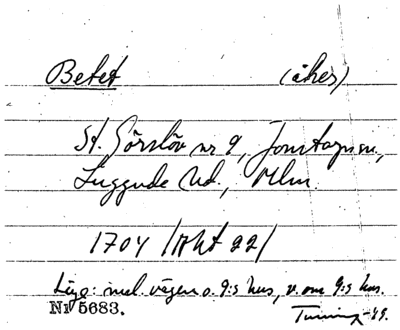 Betet (åker)
St. Sörslöv nr 9, Jonstorps sn,
Luggude hd., Mlm.
1704 /Akt 22/
Läge: mel. vägen o. 9:s hus, v. om 9:s hus.
Nr 5683.